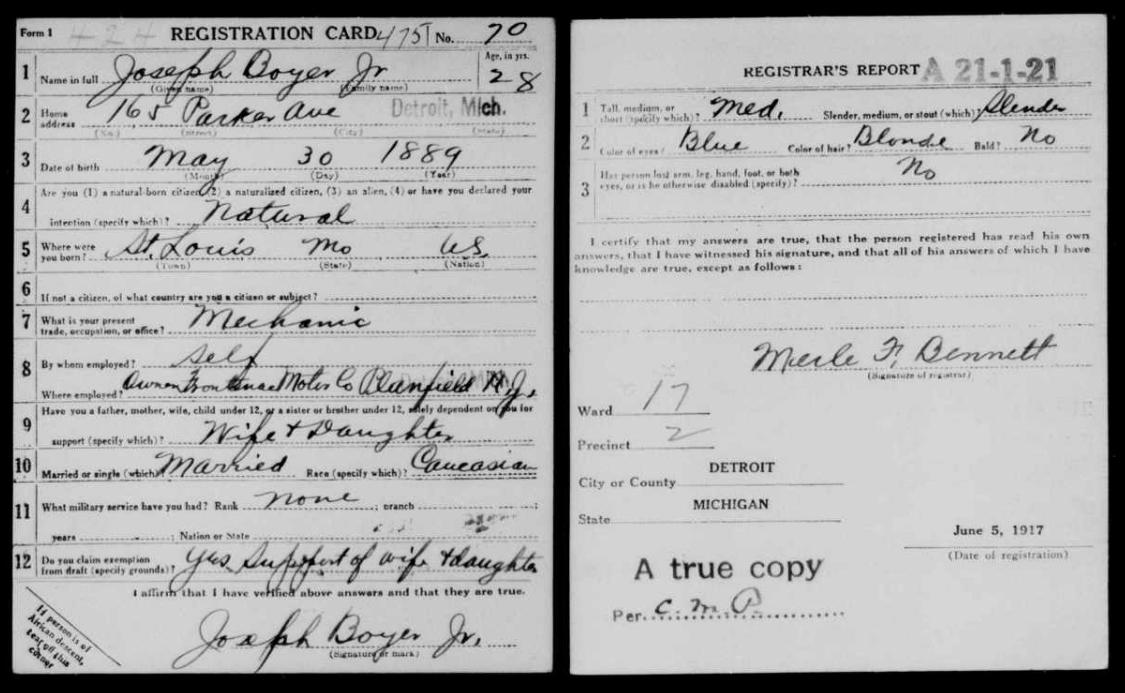 Form 1 424 REGISTRATION CARD 4751 No. 70
1 Name in full Joseph Boyer Jr Age, in yrs. 28
(Given name) (Family name)
2 Home address 165 Parker Ave Detroit, Mich.
(No.) (Street) (City) (State)
3 Date of birth May 30 1889
(Month) (Day) (Year)
4 Are you (1) a natural-born citizen, (2) a naturalized citizen, (3) an alien, (4) or have you declared your
intention (specify which)? Natural
5 Where were you born? St. Louis Mo US
(Town) (State) (Nation)
6 If not a citizen, of what country are you a citizen or subject?
7 What is your present trade, occupation, or office? Mechanic
8 By whom employed? Self
Where employed? Owner Frontenac Motor Co Plainfield N.J.
9 Have you a father, mother, wife, child under 12, or a sister or brother under 12, solely dependent on you for
support (specify which)? Wife + Daughter
10 Married or single (which)? Married Race (specify which)? Caucasian
11 What military service have you had? Rank none ; branch ;
years ; Nation or State
12 Do you claim exemption from draft (specify grounds)? Yes Support of wife + daughter
I affirm that I have verified above answers and that they are true.
Joseph Boyer Jr.
(Signature or mark)
If person is of
African descent,
tear off this
corner
REGISTRAR'S REPORT A 21-1-21
1 Tall, medium, or short (specify which)? Med. Slender, medium, or stout (which)? Slender
2 Color of eyes? Blue Color of hair? Blonde Bald? No
3 Has person lost arm, leg, hand, foot, or both
eyes, or is he otherwise disabled (specify)? No
I certify that my answers are true, that the person registered has read his own
answers, that I have witnessed his signature, and that all of his answers of which I have
knowledge are true, except as follows:
Merle F. Bennett
(Signature of registrar)
Ward 17
Precinct 2
DETROIT
City or County
MICHIGAN
State
June 5, 1917
(Date of registration)
A true copy
Per C. M. P.